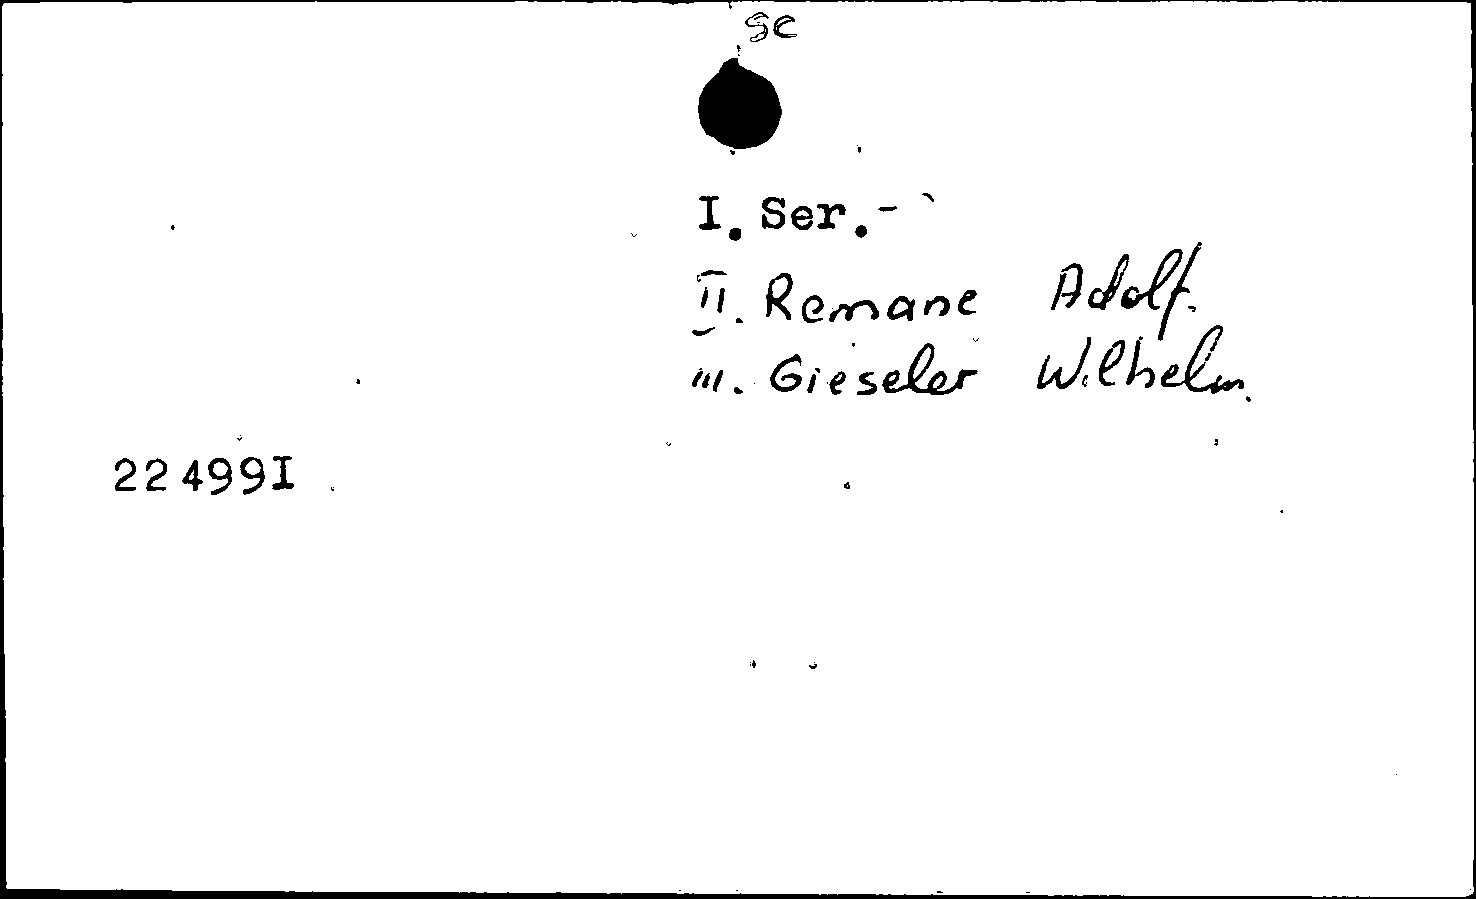 sc
I. Ser.-
II. Remane Adolf.
III. Gieseler Wilhelm.
22 499I